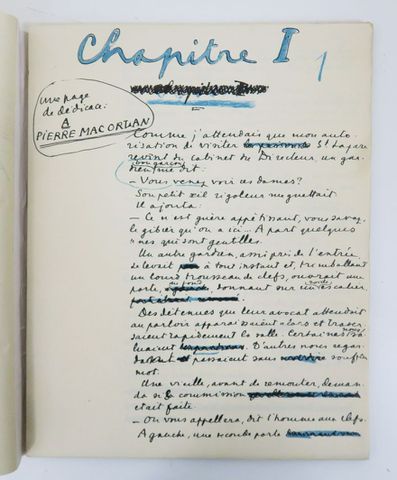 Chapitre I
1
une page
de dédicace:
A
PIERRE MAC ORLAN
Comme j'attendais que mon auto-
risation de visiter St Lazare
revint du cabinet du Directeur, un gar-
bon garçon
dien me dit:
— Vous venez voir ces dames?
Son petit œil rigoleur me guettait
Il ajouta:
— Ce n'est guère appétissant, vous savez,
le gibier qu'on a ici... A part quelques
unes qui sont gentilles.
Un autre gardien, assis près de l'entrée,
se levait à tout instant et, trimballant
un lourd trousseau de clefs, ouvrait une
porte, au fond, donnant sur un escalier.
Des détenues que leur avocat attendait
au parloir apparaissaient alors et traver-
saient rapidement la salle. Certaines
saluaient D'autres nous regar-
daient et passaient sans souffler
mot.
Une vieille, avant de remonter, deman-
da si la commission
était faite
— On vous appellera, dit l'homme aux clefs.
A gauche, une seconde porte